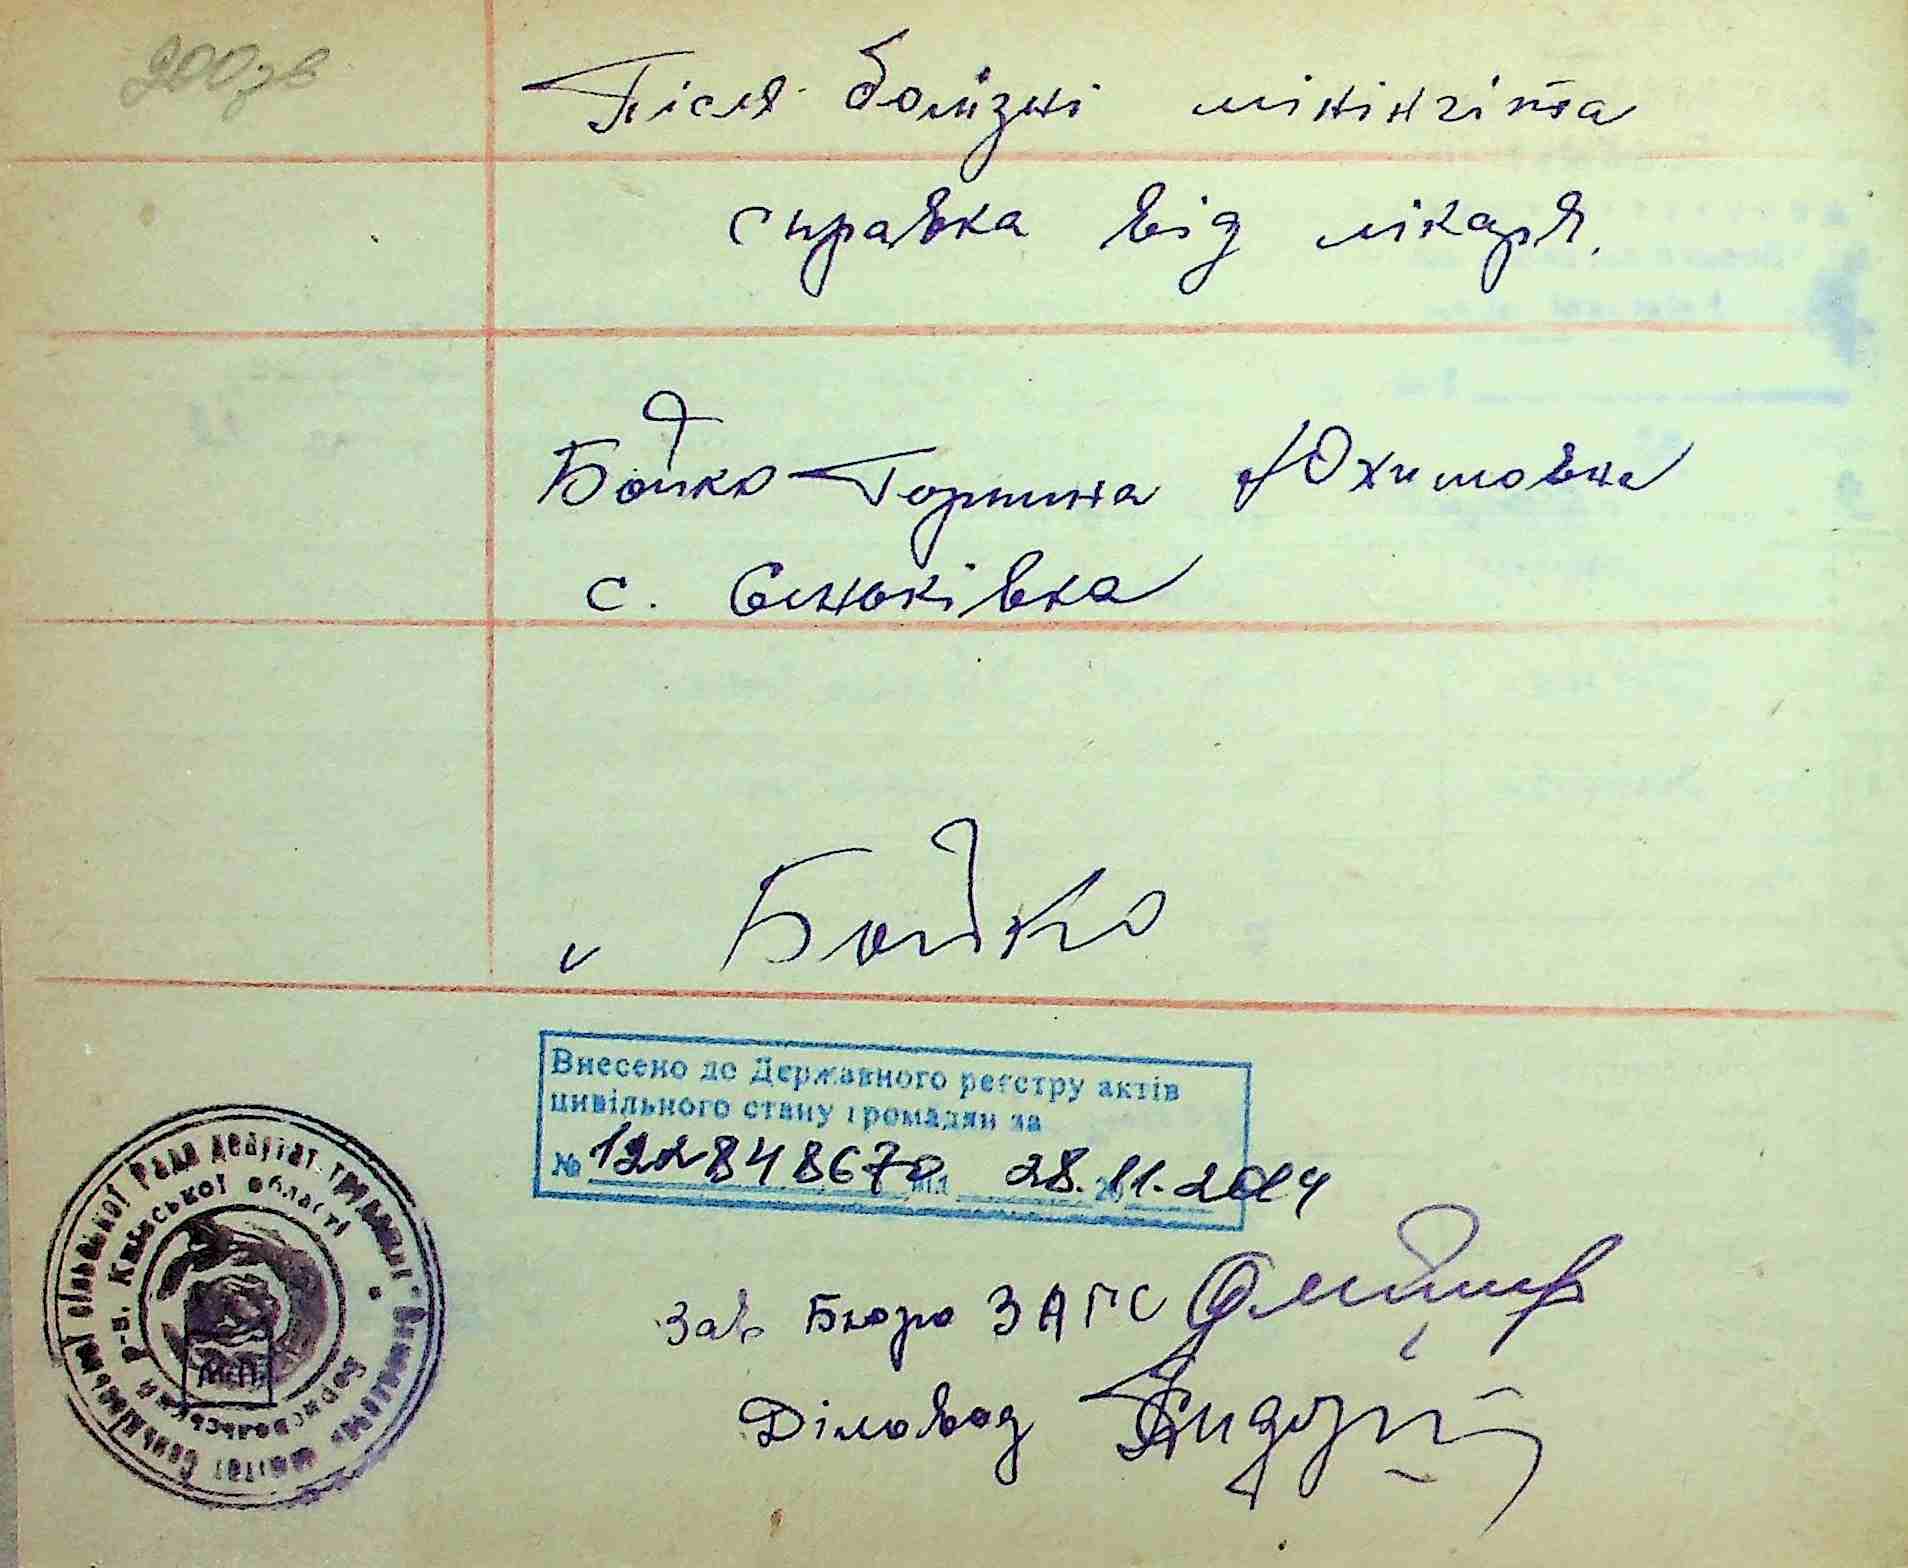 200зв
Після болізні мінінгіта
справка від лікаря.
Бойко Горпина Юхимовна
с. Сеньківка
Бойко
Внесено до Державного реєстру актів
цивільного стану громадян за
№ 12284867 28.11.2014
зав Бюро ЗАГС
Діловод
Сеньківської сільської Ради депутат. трудящих
Бориспольський р-н. Київської області
М.П.